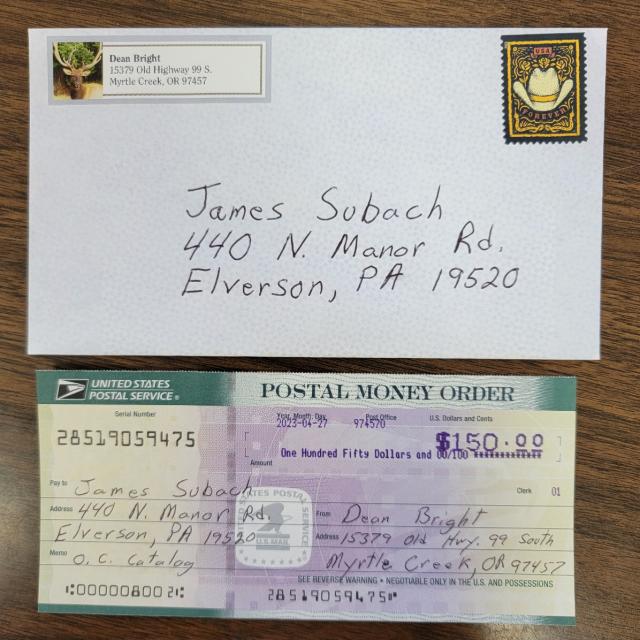 Dean Bright
15379 Old Highway 99 S.
Myrtle Creek, OR 97457
USA
FOREVER
James Subach
440 N. Manor Rd.
Elverson, PA 19520
UNITED STATES
POSTAL SERVICE®
POSTAL MONEY ORDER
Serial Number
28519059475
Year, Month, Day
Post Office
U.S. Dollars and Cents
2023-04-27
974570
$150.00
Amount
One Hundred Fifty Dollars and 00/100
Pay to
James Subach
Address
440 N. Manor Rd.
Elverson, PA 19520
Memo
O.C. Catalog
Clerk
01
From
Dean Bright
Address
15379 Old Hwy. 99 South
Myrtle Creek, OR 97457
U.S. MAIL
SEE REVERSE WARNING • NEGOTIABLE ONLY IN THE U.S. AND POSSESSIONS
⑆000008002⑆
28519059475⑈